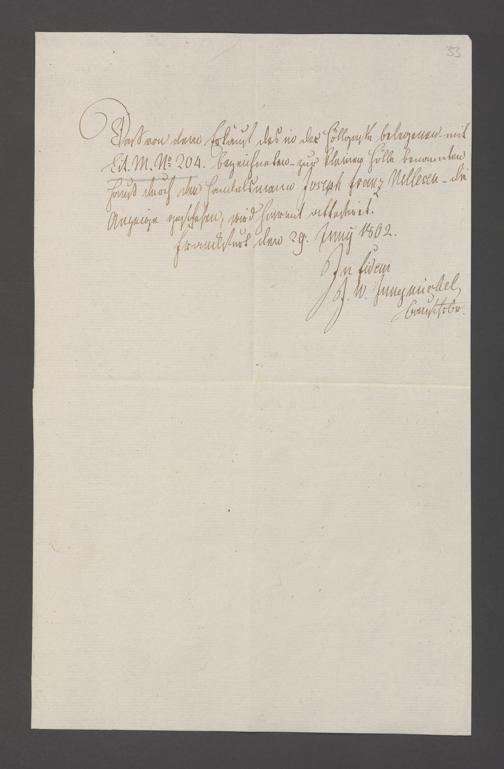 33
Daß von dem Erkauf des in der Höllgasse belegenen mit
Lit. M. No 204. bezeichneten zur kleinen Hölle benannten
Hauß durch den Handelsmann Joseph Franz Nellesen die
Anzeige geschehen, wird hiermit attestirt.
Frankfurt den 29. Juny 1802.
In fidem
J. W.